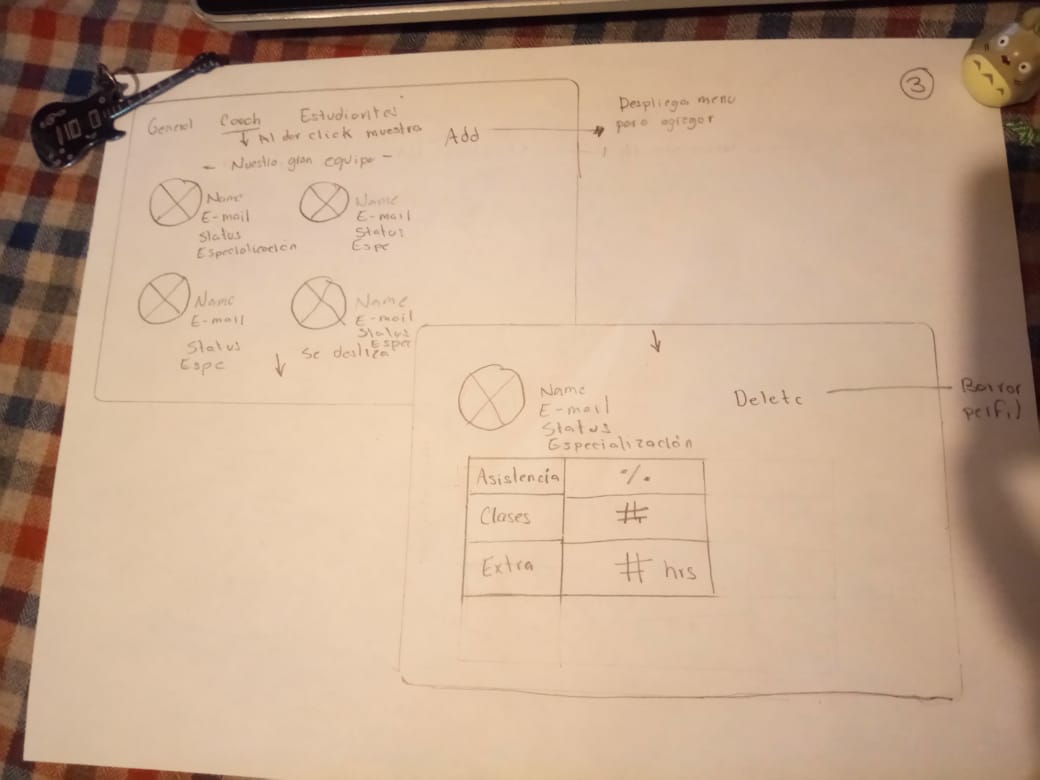 3
General Coach Estudiantes
Al dar click muestra
Add
Despliega menu
para agregar
- Nuestro gran equipo -
Name
E-mail
Status
Especialización
Name
E-mail
Status
Espe
Name
E-mail
Status
Espe
Name
E-mail
Status
Espe
Se desliza
Name
E-mail
Status
Especialización
Delete
Borrar
perfil
Asistencia %
Clases #
Extra # hrs